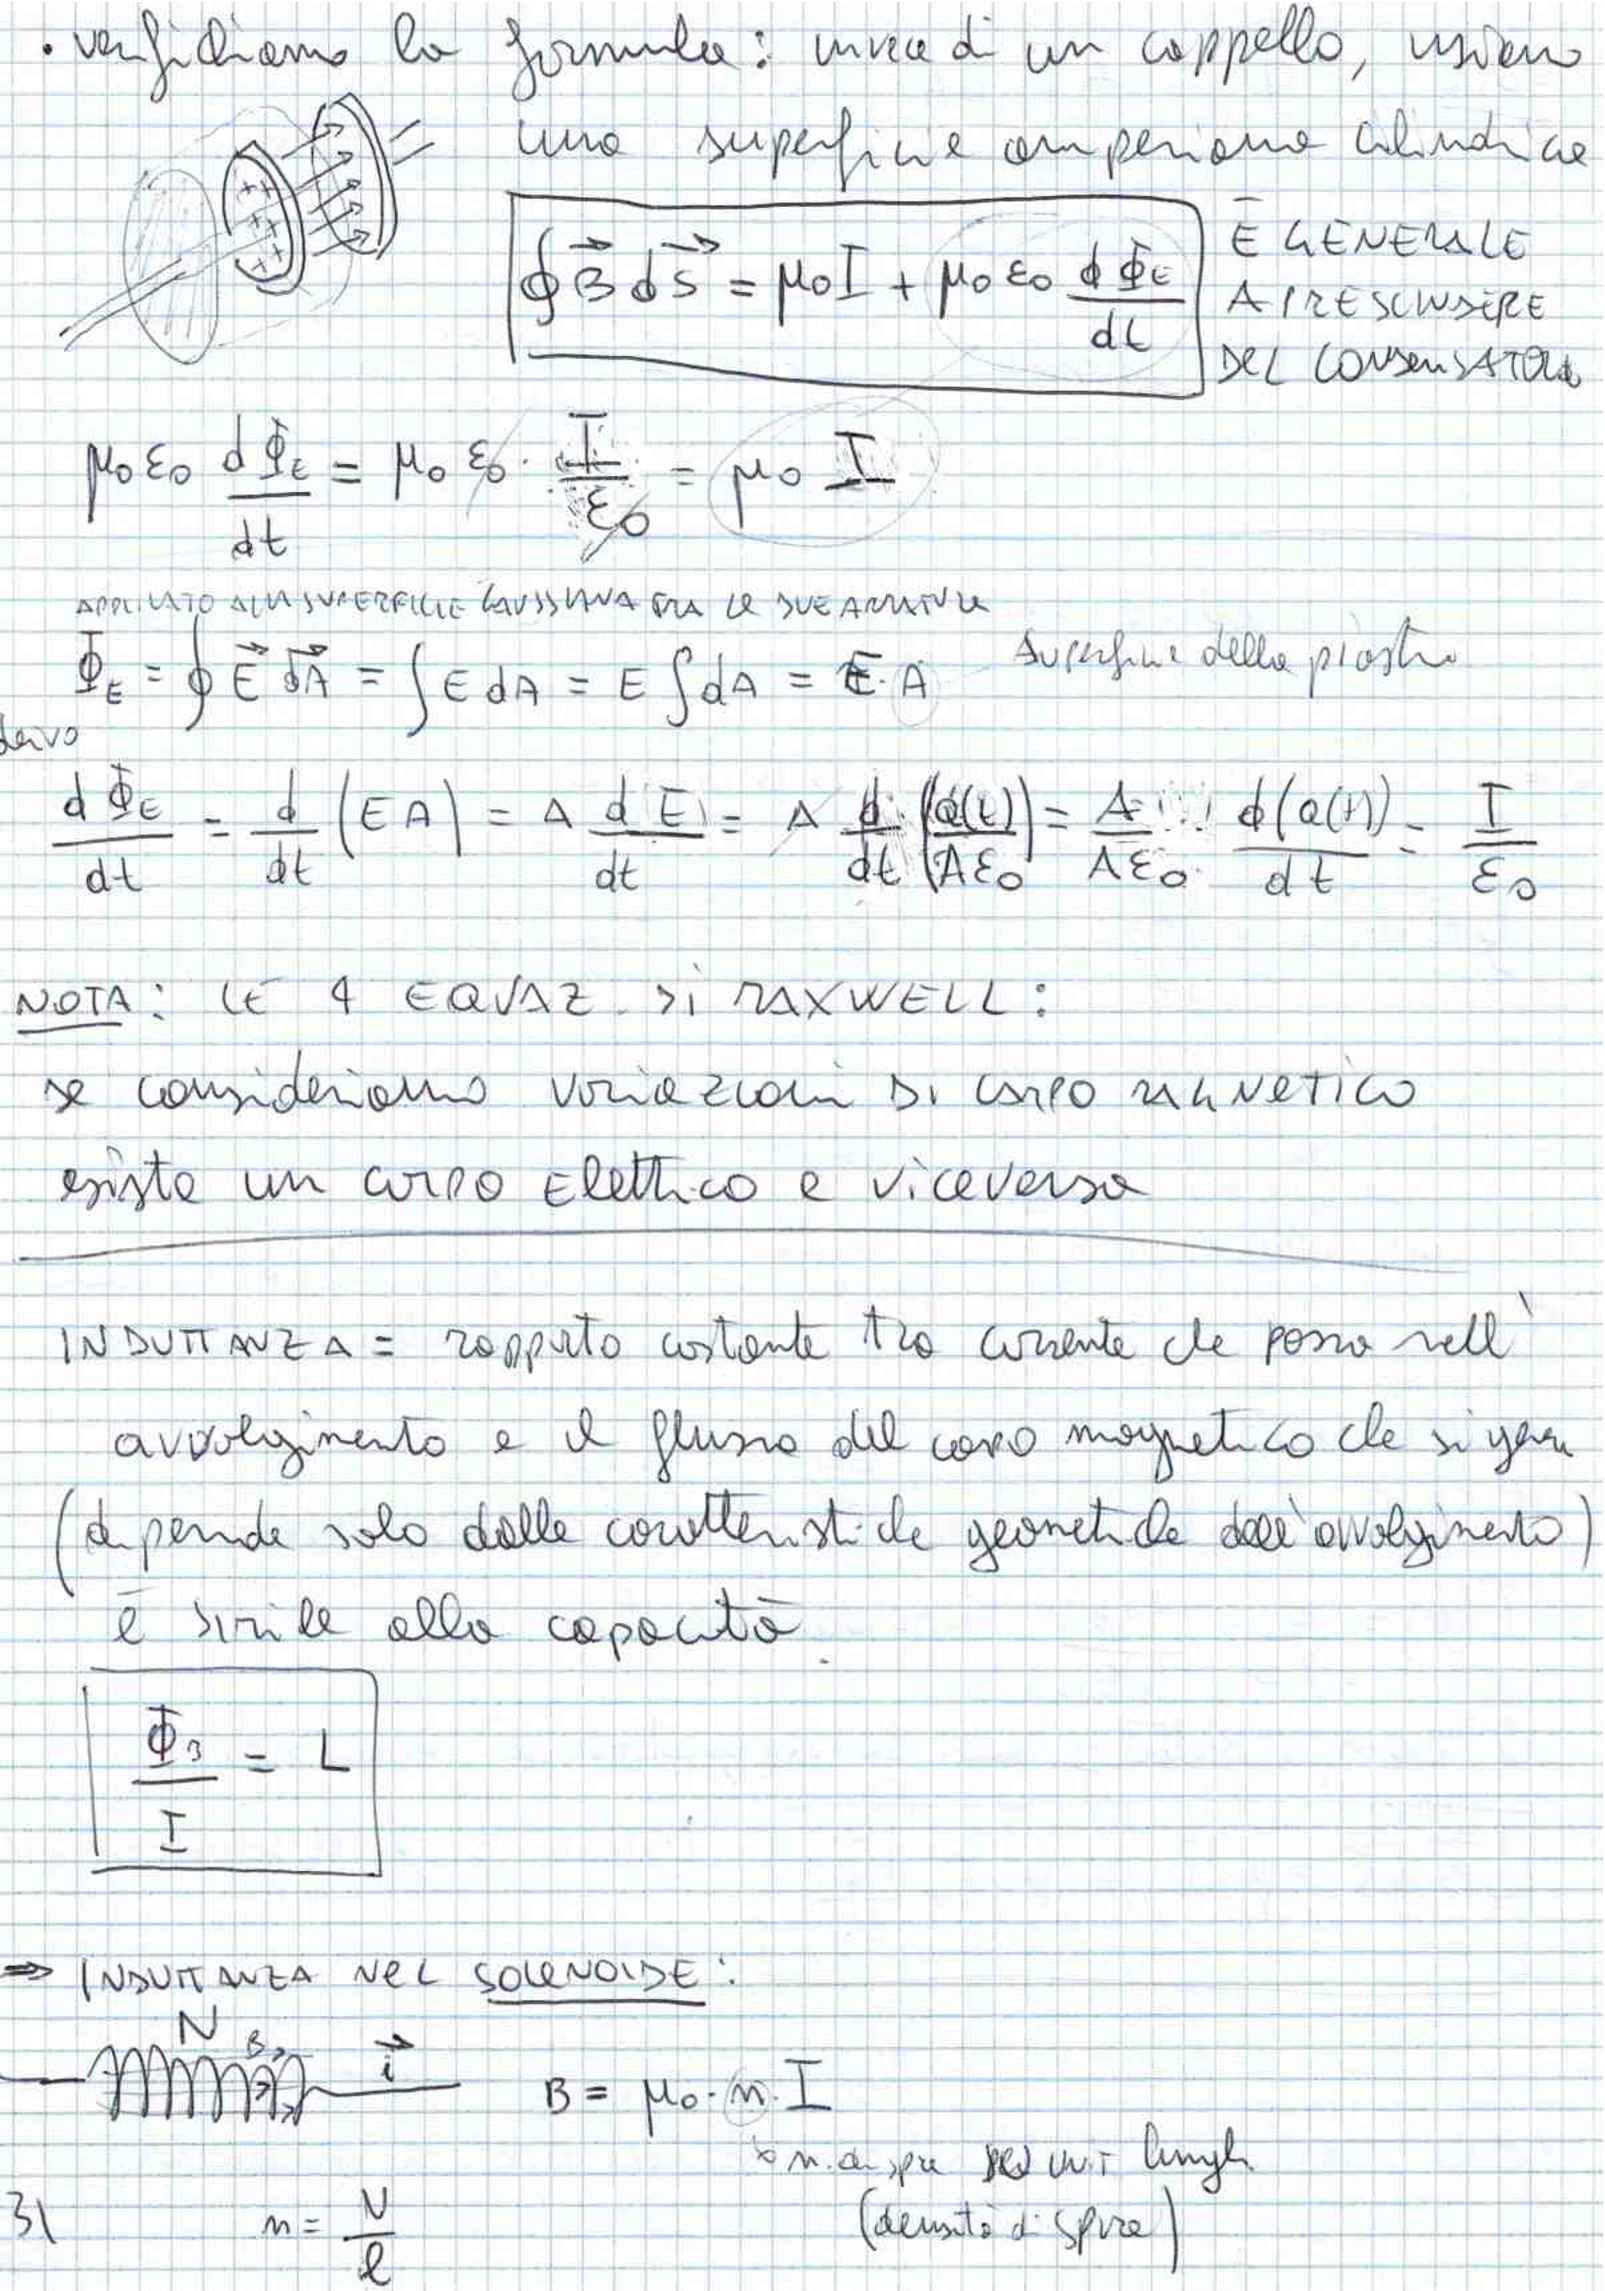 • verifichiamo la formula: invece di un cappello, usiamo
una superficie amperiana cilindrica
∮ B⃗ dS⃗ = μ₀I + μ₀ ε₀ dΦE/dt
È GENERALE
A PRESCINDERE
DEL CONDENSATORE
μ₀ ε₀ dΦE/dt = μ₀ ε₀ · I/ε₀ = μ₀ I
APPLICATO ALLA SUPERFICIE GAUSSIANA FRA LE DUE ARMATURE
ΦE = ∮ E⃗ dA⃗ = ∫ E dA = E ∫ dA = E · A superficie della piastra
derivo
dΦE/dt = d/dt (EA) = A d(E)/dt = A d/dt (Q(t)/Aε₀) = A/Aε₀ d(Q(t))/dt = I/ε₀
NOTA: LE 4 EQUAZ. DI MAXWELL:
se consideriamo variazioni DI CAMPO MAGNETICO
esiste un campo Elettrico e viceversa
INDUTTANZA = rapporto costante tra corrente che passa nell'
avvolgimento e il flusso del campo magnetico che si gen
(dipende solo dalle caratteristiche geometriche dell'avvolgimento)
è simile alla capacità.
ΦB/I = L
⇒ INDUTTANZA NEL SOLENOIDE:
N B i⃗
B = μ₀ · n · I
n. di spire per unit lungh
(densità di spire)
31 n = N/l